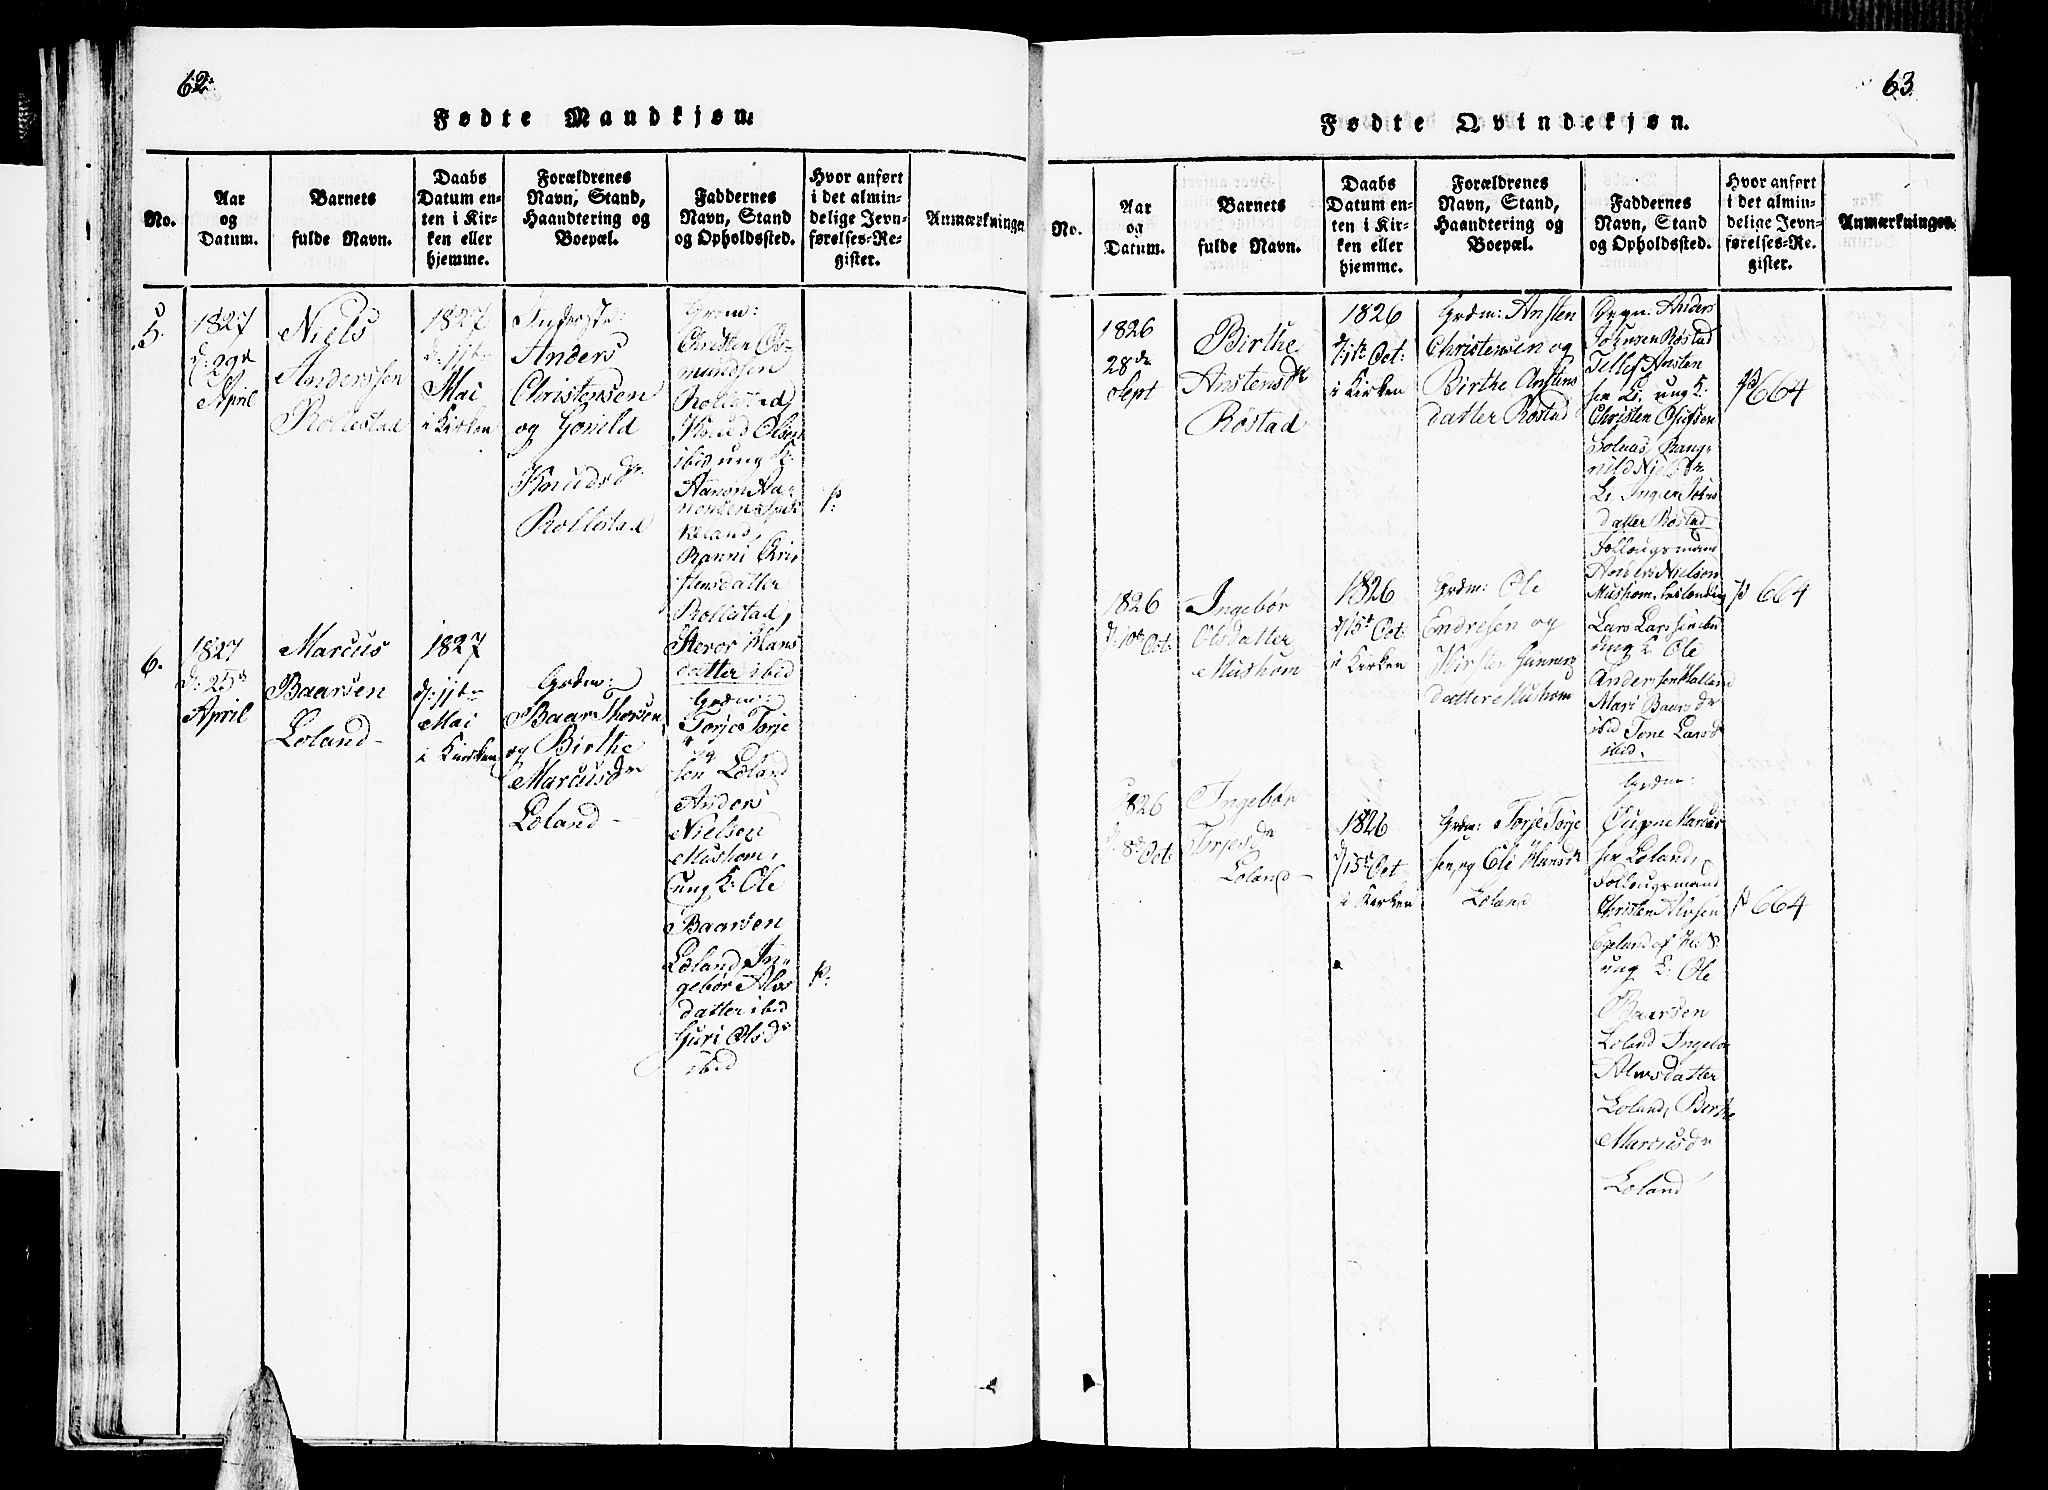 62.
Fødte Mandkjøn.
No.
Aar
og
Datum.
Barnets
fulde Navn.
Daabs
Datum en-
ten i Kir-
ken eller
hjemme.
Forældrenes
Navn, Stand,
Haandtering og
Boepæl.
Faddernes
Navn, Stand
og Opholdssted.
Hvor anført
i det almin-
delige Jevn-
førelses-Re-
gister.
Anmærkninger
5.
1827
d: 29de
April
Niels
Anderssen
Rollestad
1827
d: 11te
Mai
i Kirken
Inderste:
Anders
Christensen
og Gonild
Knudsdr.
Rollestad
Grdm:
Christen Os-
mundsen
Rollestad,
Knud Olsen
ibid ung K:
Aanon Aa-
nonsen
keland,
Ranni Chri
stensdatter
Rollestad,
Steror Hans
datter ibid
p:
6.
1827
d: 25de
April
Marcus
Baarsen
Loland
1827
d: 11te
Mai
i Kirken
Grdm:
Baar Thorsen
og Birthe
Marcusdr
Loland
Grdm:
Torje Torje
sen Loland
Anders
Nielsen
Mushom,
ung K: Ole
Baarsen
Loland, In-
gebør Alvs
datter ibid
Guri Olsdr
ibid
p:
63.
Fødte Qvindekjøn.
No.
Aar
og
Datum.
Barnets
fulde Navn.
Daabs
Datum en-
ten i Kir-
ken eller
hjemme.
Forældrenes
Navn, Stand,
Haandtering og
Boepæl.
Faddernes
Navn, Stand
og Opholdssted.
Hvor anført
i det almin-
delige Jevn-
førelses-Re-
gister.
Anmærkninger.
1826
28de
Sept
Birthe
Anstensdr
Røstad
1826
d: 1te Oct:
i Kirken
Grdm: Ansten
Christensen og
Birthe Anstens
datter Røstad
Anders
Johnsen Røstad
Tellef Ansten
sen ung K:
Christen
Rang-
nild Nielsdr
Inger Johns
datter Røstad
p 664
1826
d: 10de Oct:
Ingebør
Olsdatter
Mushom
1826
d: 15de Oct:
i Kirken
Grdm: Ole
Endresen og
Kirsten Gunners
datter Mushom
Follougsmand
Anders Nielsen
Mushom,
Lars Larssen ibid
ung K Ole
Anderssen Haaland
Mari Baarsdr
ibid Tone Larsdr
ibid.
p 664
1826
d: 8de Oct:
Ingebør
Torjesdr
Loland
1826
d: 15de Oct
i Kirken
Grdm: Torje Torje
sen og Ole Hansdr
Loland
Grdm:
Marcus
sen Loland,
Follougsmand
Christen Alvsen
Egeland af
ung K: Ole
Baarsen
Loland Ingebør
Alvsdatter
Loland, Berthe
Marcusdr
Loland
p 664